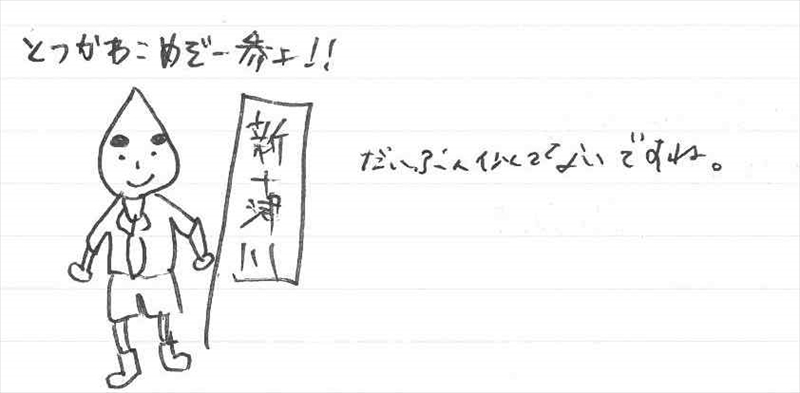 とつかわこめぞー参上!!
新十津川
だいぶん似てないですね。